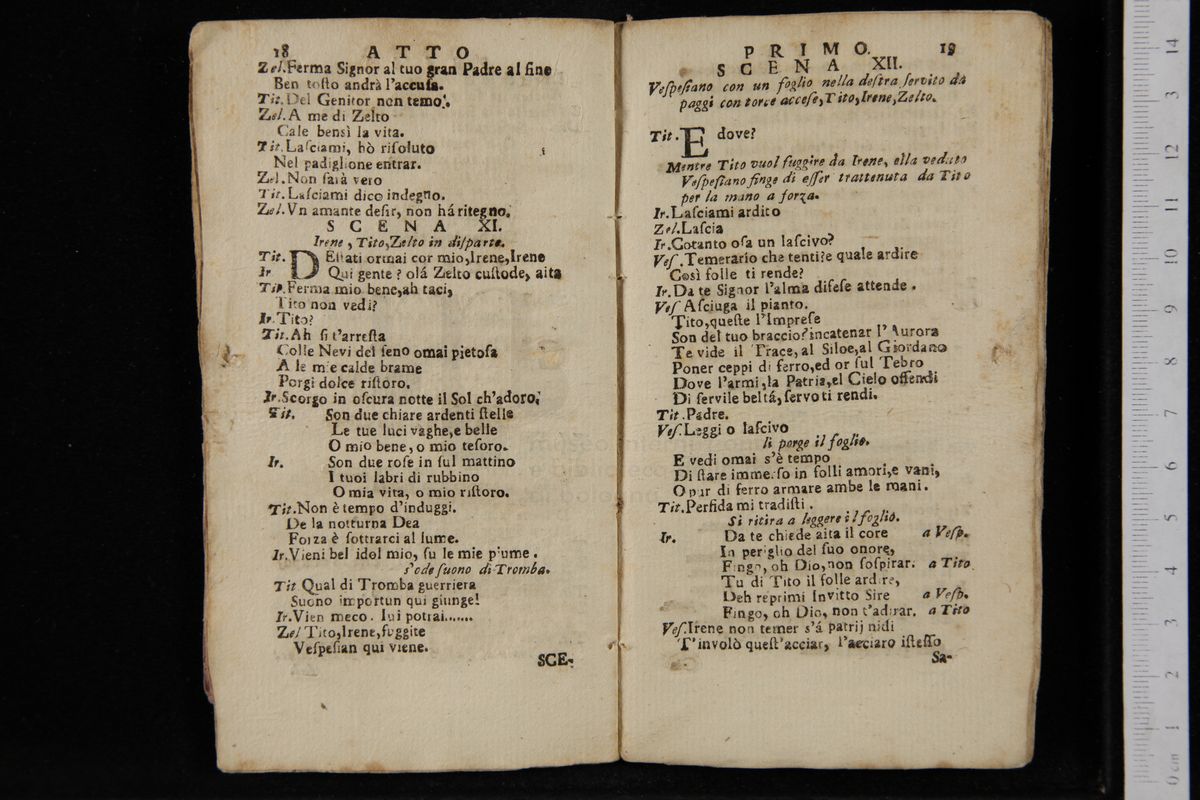 18 ATTO
Zel. Ferma Signor al tuo gran Padre al fine
Ben toſto andrà l'accuſa.
Tit. Del Genitor non temo.
Zel. A me di Zelto
Cale bensì la vita.
Tit. Laſciami, hò riſoluto
Nel padiglione entrar.
Zel. Non ſarà vero
Tit. Laſciami dico indegno.
Zel. Vn amante deſir, non há ritegno.
SCENA XI.
Irene, Tito, Zelto in diſparte.
Tit. DEſtati ormai cor mio, Irene, Irene
Ir Qui gente? olá Zelto cuſtode, aita
Tit. Ferma mio bene, ah taci,
Tito non vedi?
Ir. Tito?
Tit. Ah ſi t'arreſta
Colle Nevi del ſeno omai pietoſa
A le mie calde brame
Porgi dolce riſtoro.
Ir. Scorgo in oſcura notte il Sol ch'adoro,
Tit. Son due chiare ardenti ſtelle
Le tue luci vaghe, e belle
O mio bene, o mio teſoro.
Ir. Son due roſe in ſul mattino
I tuoi labri di rubbino
O mia vita, o mio riſtoro.
Tit. Non è tempo d'induggi.
De la notturna Dea
Forza è ſottrarci al lume.
Ir. Vieni bel idol mio, ſu le mie piume.
s'ode ſuono di Tromba.
Tit Qual di Tromba guerriera
Suono importun qui giunge!
Ir. Vien meco. lui potrai.......
Zel Tito, Irene, fuggite
Veſpeſian qui viene.
SCE-
PRIMO. 19
SCENA XII.
Veſpeſiano con un foglio nella deſtra ſervito da
paggi con torce acceſe, Tito, Irene, Zelto.
Tit. E dove?
Mentre Tito vuol fuggire da Irene, ella veduto
Veſpeſiano finge di eſſer trattenuta da Tito
per la mano a forza.
Ir. Laſciami ardito
Zel. Laſcia
Ir. Cotanto oſa un laſcivo?
Veſ. Temerario che tenti? e quale ardire
Così folle ti rende?
Ir. Da te Signor l'alma difeſe attende.
Veſ Aſciuga il pianto.
Tito, queſte l'Impreſe
Son del tuo braccio? incatenar l'Aurora
Te vide il Trace, al Siloe, al Giordano
Poner ceppi di ferro, ed or ſul Tebro
Dove l'armi, la Patria, el Cielo offendi
Di ſervile beltá, ſervo ti rendi.
Tit. Padre.
Veſ. Leggi o laſcivo
li porge il foglio.
E vedi omai s'è tempo
Di ſtare immerſo in folli amori, e vani,
O pur di ferro armare ambe le mani.
Tit. Perfida mi tradiſti.
Si ritira a leggere il foglio.
Ir. Da te chiede aita il core a Veſp.
In periglio del ſuo onore,
Fingo, oh Dio, non ſoſpirar. a Tito
Tu di Tito il folle ardire,
Deh reprimi Invitto Sire a Veſp.
Fingo, oh Dio, non t'adirar. a Tito
Veſ. Irene non temer s'á patrij nidi
T'involò queſt'acciar, l'acciaro iſteſſo
Sa-